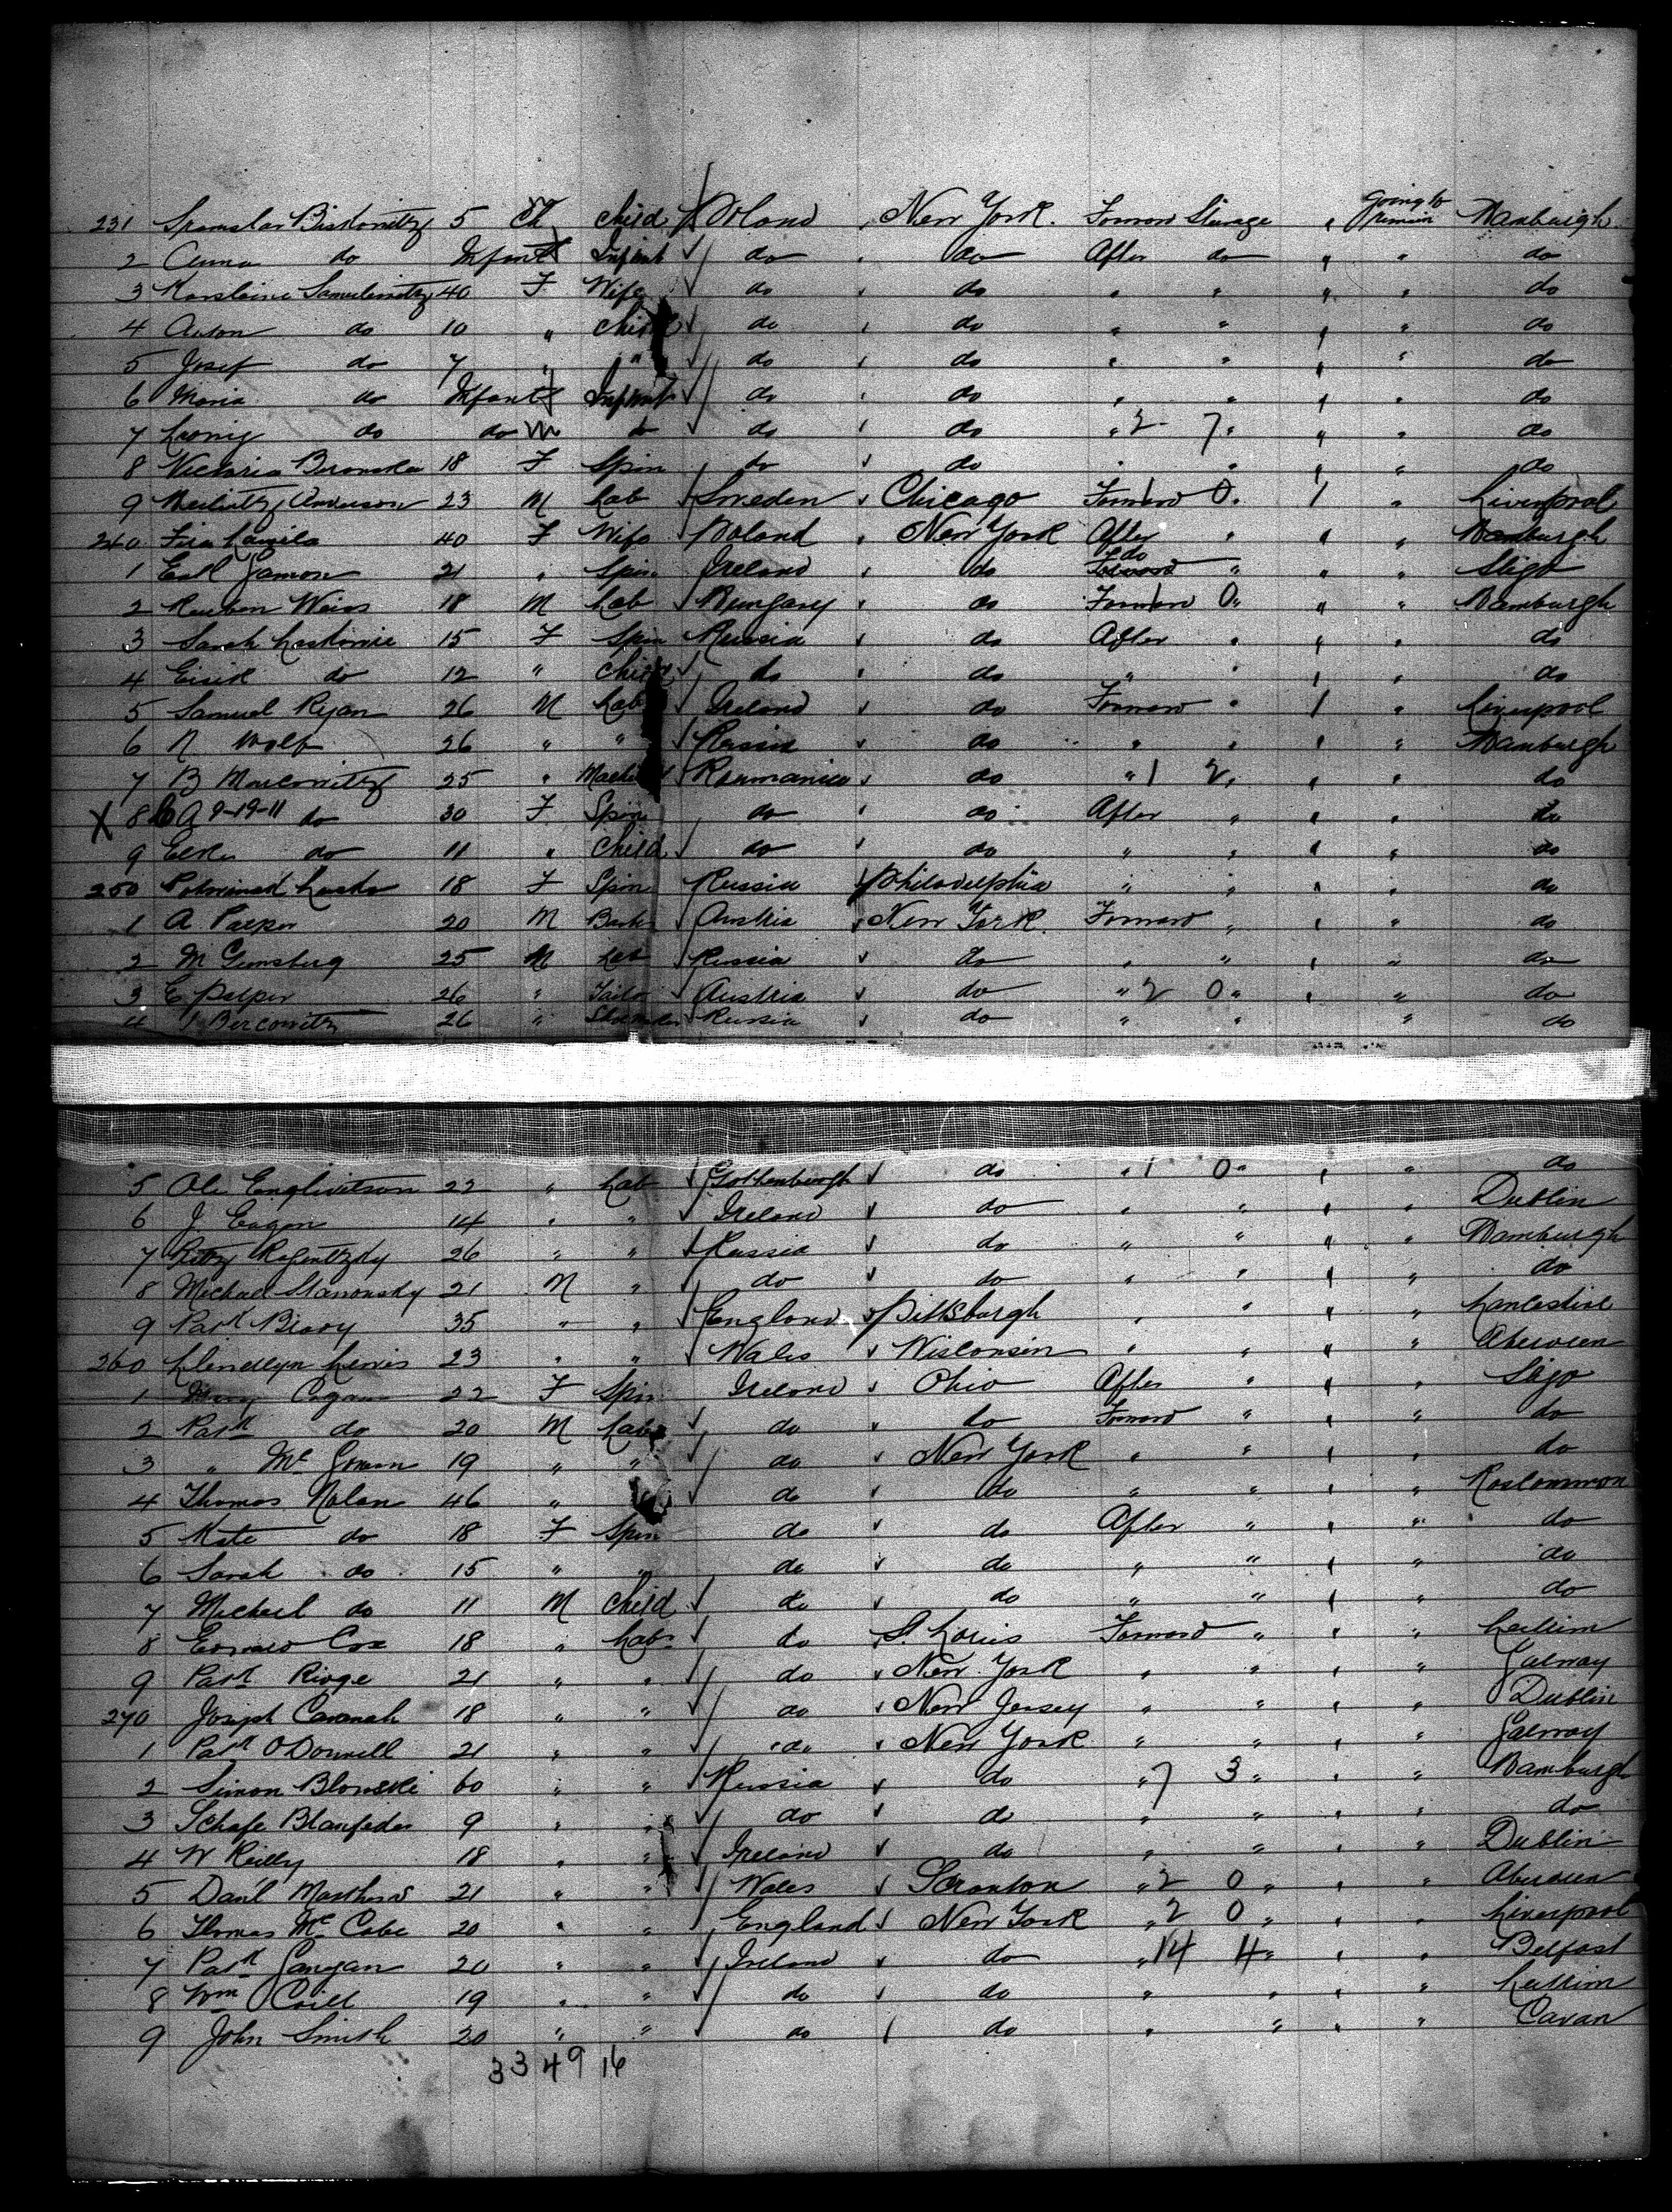 231 Spanislav Biskovitz 5 Ch Child Poland New York. Forward Sterage " Going to remain Hamburgh
2 Anna do Infant Infant do do After do " " do
3 Samulewitz 40 F Wife do do " " " " do
4 Anton do 10 " Child do do " " " " do
5 Josef do 7 " " do do " " " " do
6 Maria do Infant f Infant do do " " " " do
7 do do M do do do " 2 7 " " " do
8 Victoria 18 F Spin do do " " " " do
9 Anderson 23 M Lab Sweden Chicago Forward 0 " " Liverpool
240 40 F Wife Poland New York After " " " Hamburgh
1 21 " Spin Ireland do do " " " Sligo
2 Reuben Weiss 18 M Lab Hungary do Forward 0 " " " Hamburgh
3 Sarah 15 F Spin Russia do After " " " do
4 Eisik do 12 " Child do do " " " " do
5 Samuel Ryan 26 M Lab Ireland do Forward " " " Liverpool
6 N Wolf 26 " " Russia do " " " " Hamburgh
7 B Marcovitz 25 " Roumania do " 1 2 " " " do
X 8 CA 9-19-11 do 30 F Spin do do After " " " do
9 do 11 " Child do do " " " " do
250 18 F Spin Russia Philadelphia " " " " do
1 A. 20 M Austria New York. Forward " " " do
2 M Gunsberg 25 M Lab Russia do " " " " do
3 E 26 " Tailo Austria do " 2 0 " " " do
4 Bercovitz 26 " Russia do " " " do
5 Ole 22 " Lab Gothenburgh do " 1 0 " " " do
6 J. Eagan 14 " " Ireland do " " " " Dublin
7 26 " " Russia do " " " " Hamburgh
8 Michael Stanonsky 21 M " do do " " " " do
9 Patk 35 " " England Pittsburgh " " " "
260 Llewellyn Lewis 23 " " Wales Wisconsin " " " "
1 Mary Cogan 22 F Spin Ireland Ohio After " " " Sligo
2 Patk do 20 M Lab do do Forward " " " do
3 " Mc Gowan 19 " " do New York " " " " do
4 Thomas Nolan 46 " do do " " " " Roscommon
5 Kate do 18 F Spin do do After " " " do
6 Sarah do 15 " " do do " " " " do
7 Michael do 11 M Child do do " " " " do
8 Edward Cox 18 " Lab do St. Louis Forward " " " Leitrim
9 Patk Ridge 21 " " do New York " " " " Galway
270 Joseph Cavanah 18 " " do New Jersey " " " " Dublin
1 Patk O'Donnell 21 " " do New York " " " " Galway
2 Simon Blonski 60 " " Russia do " 7 3 " " " Hamburgh
3 Schafe Blaufeder 9 " " do do " " " " do
4 W Reilly 18 " " Ireland do " " " " Dublin
5 Danl Matthews 21 " " Wales Scranton " 2 0 " " "
6 Thomas Mc Cabe 20 " " England New York " 2 0 " " " Liverpool
7 Patk Gangan 20 " " Ireland do " 14 4 " " " Belfast
8 Wm 19 " " do do " " " " Leitrim
9 John Smith 20 " " do do " " " " Cavan
33 49 16